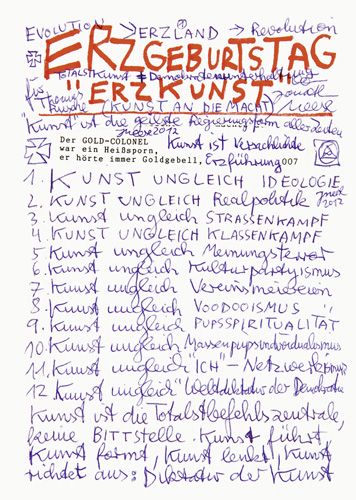 EVOLUTION → ERZLAND → Revolution
ERZGEBURTSTAG
TOTALSTKUNST ≠ Demokratenunterhaltung
für
"ERZKUNST"
(KUNST AN DIE MACHT)
Meese
"Kunst" ist die geilste Regierungsform aller Zeiten
Meese 2012
Der GOLD-COLONEL
war ein Heißsporn,
er hörte immer Goldgebell, Erzführung 007
Kunst ist Verschlüchte
1. KUNST UNGLEICH IDEOLOGIE
2. KUNST UNGLEICH Realpolitik
Meese 2012
3. Kunst ungleich STRASSENKAMPF
4. KUNST UNGLEICH KLASSENKAMPF
5. Kunst ungleich Meinungsterror
6. Kunst ungleich Kulturpartyismus
7. Kunst ungleich Vereinsmeiereien
8. Kunst ungleich VOODOOISMUS
9. Kunst ungleich PUPSSPIRITUALITÄT
10. Kunst ungleich Massenpupsindividualismus
11. Kunst ungleich "ICH"-Netzwerkerei
12. Kunst ungleich "Weltdiktatur der Demokratie
Kunst ist die Totalstbefehlszentrale,
keine BITTSTELLE. Kunst führt,
Kunst formt, Kunst lenkt, Kunst
richtet aus: Diktatur der Kunst